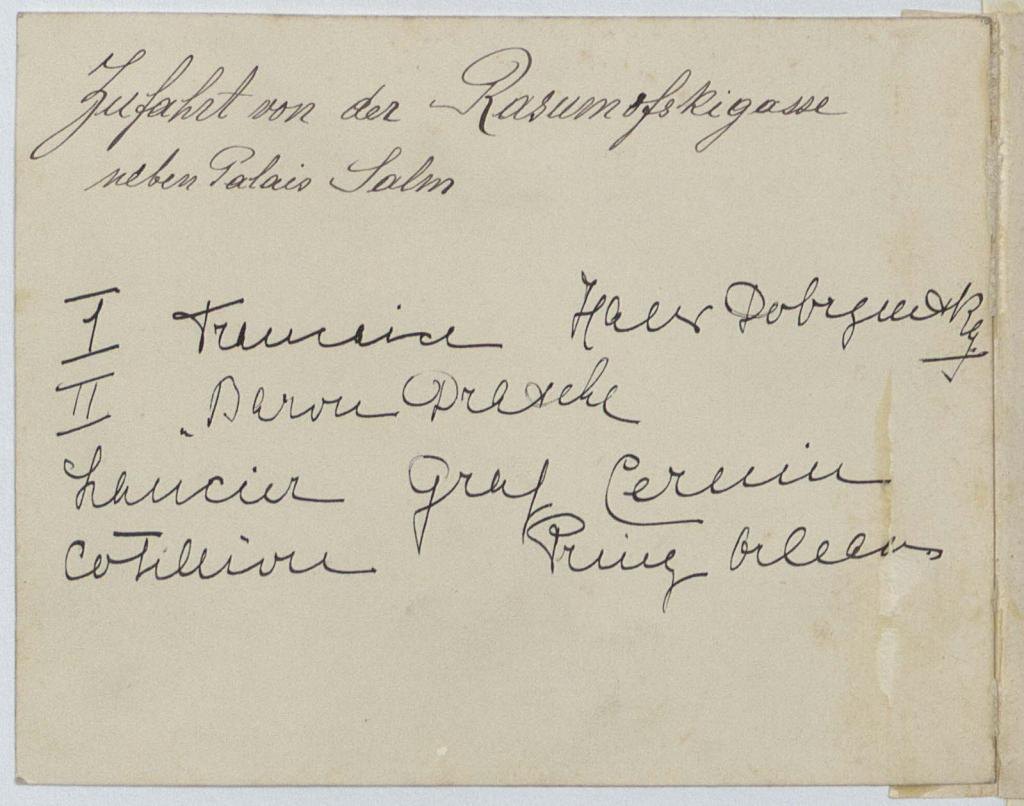 Zufahrt von der Rasumofskigasse
neben Palais Salm
I Francaise Hans Dobrzensky
II „ Baron Drasche
Lancier Graf Cernin
Cotillion Prinz Orleans